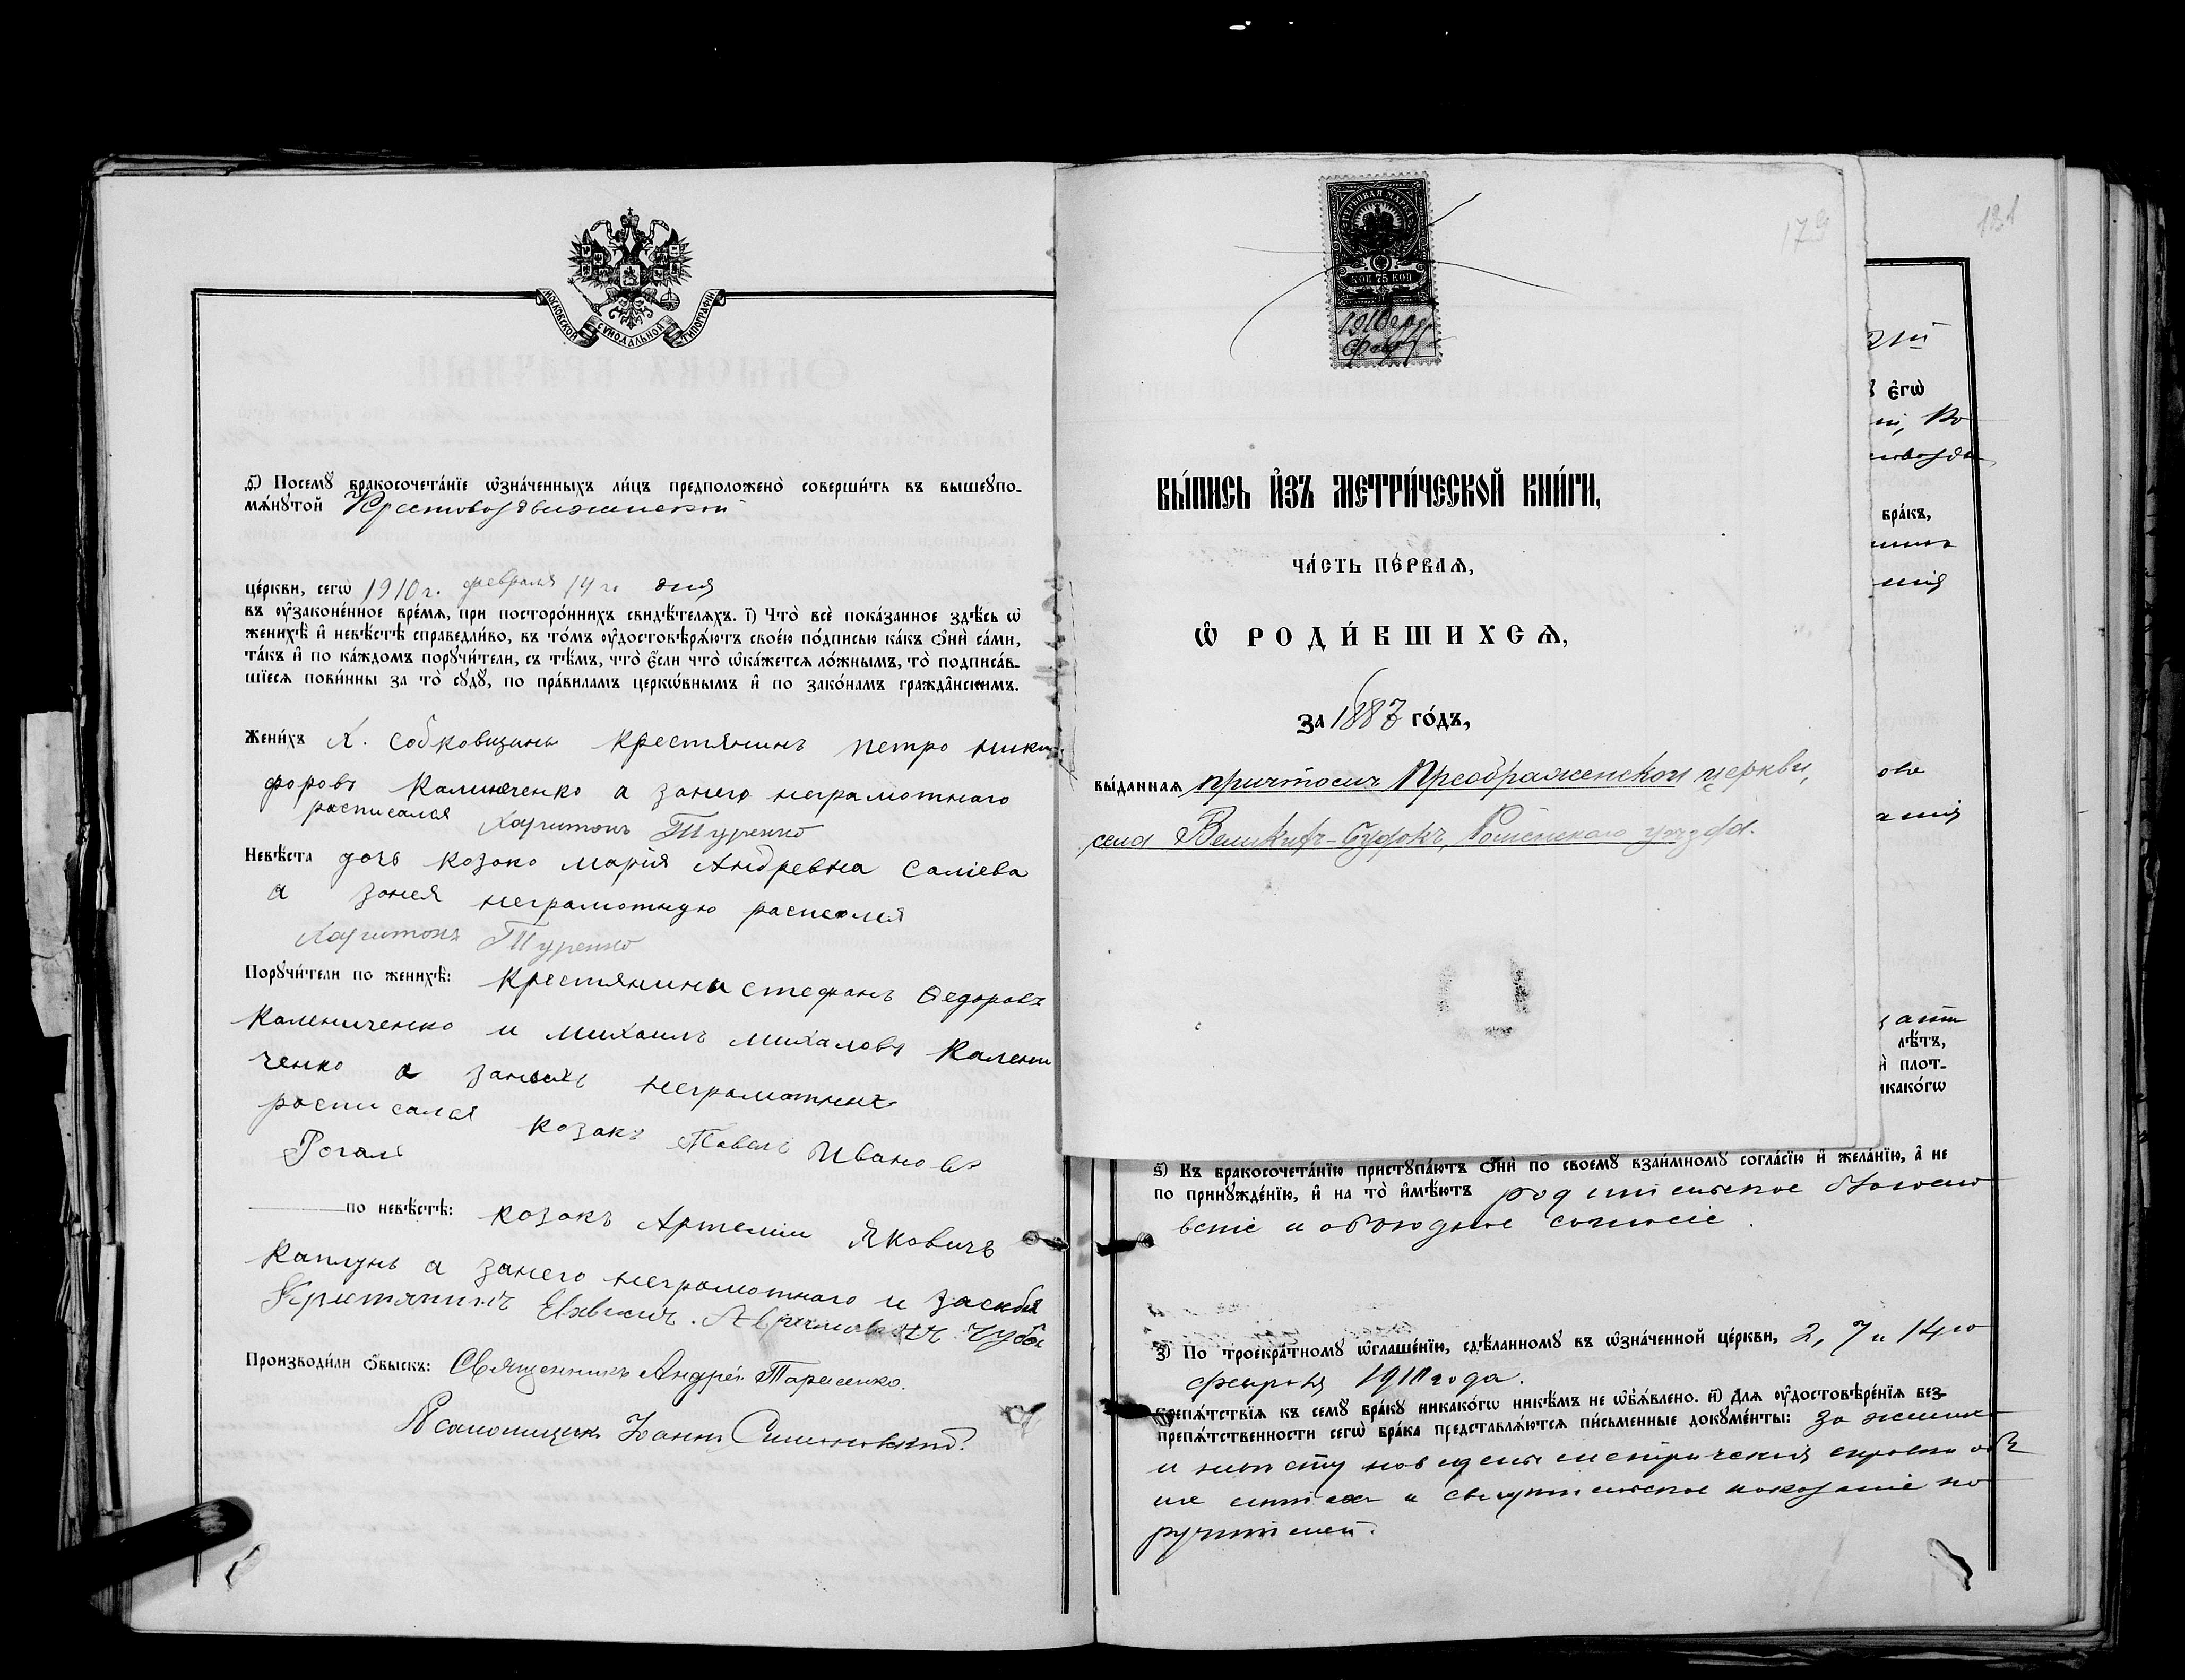 МОСКОВСКОЙ СѴНОДАЛЬНОЙ ТИПОГРАФІИ
Посемꙋ̀ бракосочета́нїе ѡ҆зна́ченныхъ ли́цъ предположено̀ соверши́ть въ вышеꙋпо-
мѧ́нꙋтой Крестовоздвиженской
це́ркви, сегѡ̀ 1910 г. февраля 14 го дня
въ ᲂу҆законе́нное вре́мѧ, при посторо́ннихъ свидѣ́телѧхъ. і҃) Что̀ всѐ пока́занное здѣ́сь ѡ҆
женихѣ̀ и҆ невѣ́стѣ справедли́во, въ то́мъ ᲂу҆достовѣрѧ́ютъ свое́ю по́дписью ка́къ ѻ҆нѝ са́ми,
та́къ и҆ по ка́ждомъ порꙋчи́тели, съ тѣ́мъ, что̀ є҆́сли что̀ ѡ҆ка́жетсѧ ло́жнымъ, то̀ подписа́в-
шїесѧ пови́нны за то̀ сꙋдꙋ̀, по пра́виламъ церкѡ́внымъ и҆ по зако́намъ гражда̑нскимъ.
Жени́хъ Х. Собковщины крестянинъ петро ники
форовъ Калинеченко а занего неграмотнаго
росписался Харитонъ Туренко
Невѣ́ста дочь козака марія Андревна Саліева
а занея неграмотную
Харитонъ Туренко
Порꙋчи́тели по женихѣ̀: Крестянини стефанъ Ѳедоровъ
Калениченко и михаилъ михаловъ Калени
ченко а неграмотних
росписался козакъ Павелъ Ивановъ
Рогаль
по невѣ́стѣ: козакъ Артемии Яковичъ
Каплунъ а занего неграмотнаго и засебя
Крестянинъ
Производи́ли ѻ҆́быскъ: Священникъ Андрей Тарасенко.
Псаломщикъ Іоаннъ
ГЕРБОВАЯ МАРКА
КОП 75 КОП
1910 год
179
181
ВЫ́ПИСЬ И҆ЗЪ МЕТРИ́ЧЕСКОЙ КНИ́ГИ,
ЧА́СТЬ ПЕ́РВАѦ,
Ѡ҆ РОДИ́ВШИХСѦ,
за 1887 го́дъ,
вы́даннаѧ причтомъ Преображенской церкви,
села Великихъ-Будокъ, Роменскаго уѣзда.
є҆гѡ̀
бра́къ,
лѣ́тъ,
плот-
ѕ҃) Къ бракосочета́нїю пристꙋпа́ютъ ѻ҆нѝ по своемꙋ̀ взаи́мномꙋ согла́сїю и҆ жела́нїю, а҆ не
по принꙋжде́нїю, и҆ на то̀ и҆мѣ́ютъ родительское благосло
веніе и обоюдное согласіе.
з҃) По троекра́тномꙋ ѡ҆глаше́нїю, сдѣ́ланномꙋ въ ѡ҆зна́ченной це́ркви, 2, 7 и 14го
февраля 1910 года.
препѧ́тствїѧ къ семꙋ̀ бра́кꙋ никако́гѡ никѣ́мъ не ѡ҆б̾ѧ́влено. и҃) Длѧ ᲂу҆достовѣре́нїѧ без-
препѧ́тственности сегѡ̀ бра́ка представлѧ́ютсѧ пи́сьменные докꙋме́нты: за жених
и невѣсту метрическія
и показаніе по
ручителей.